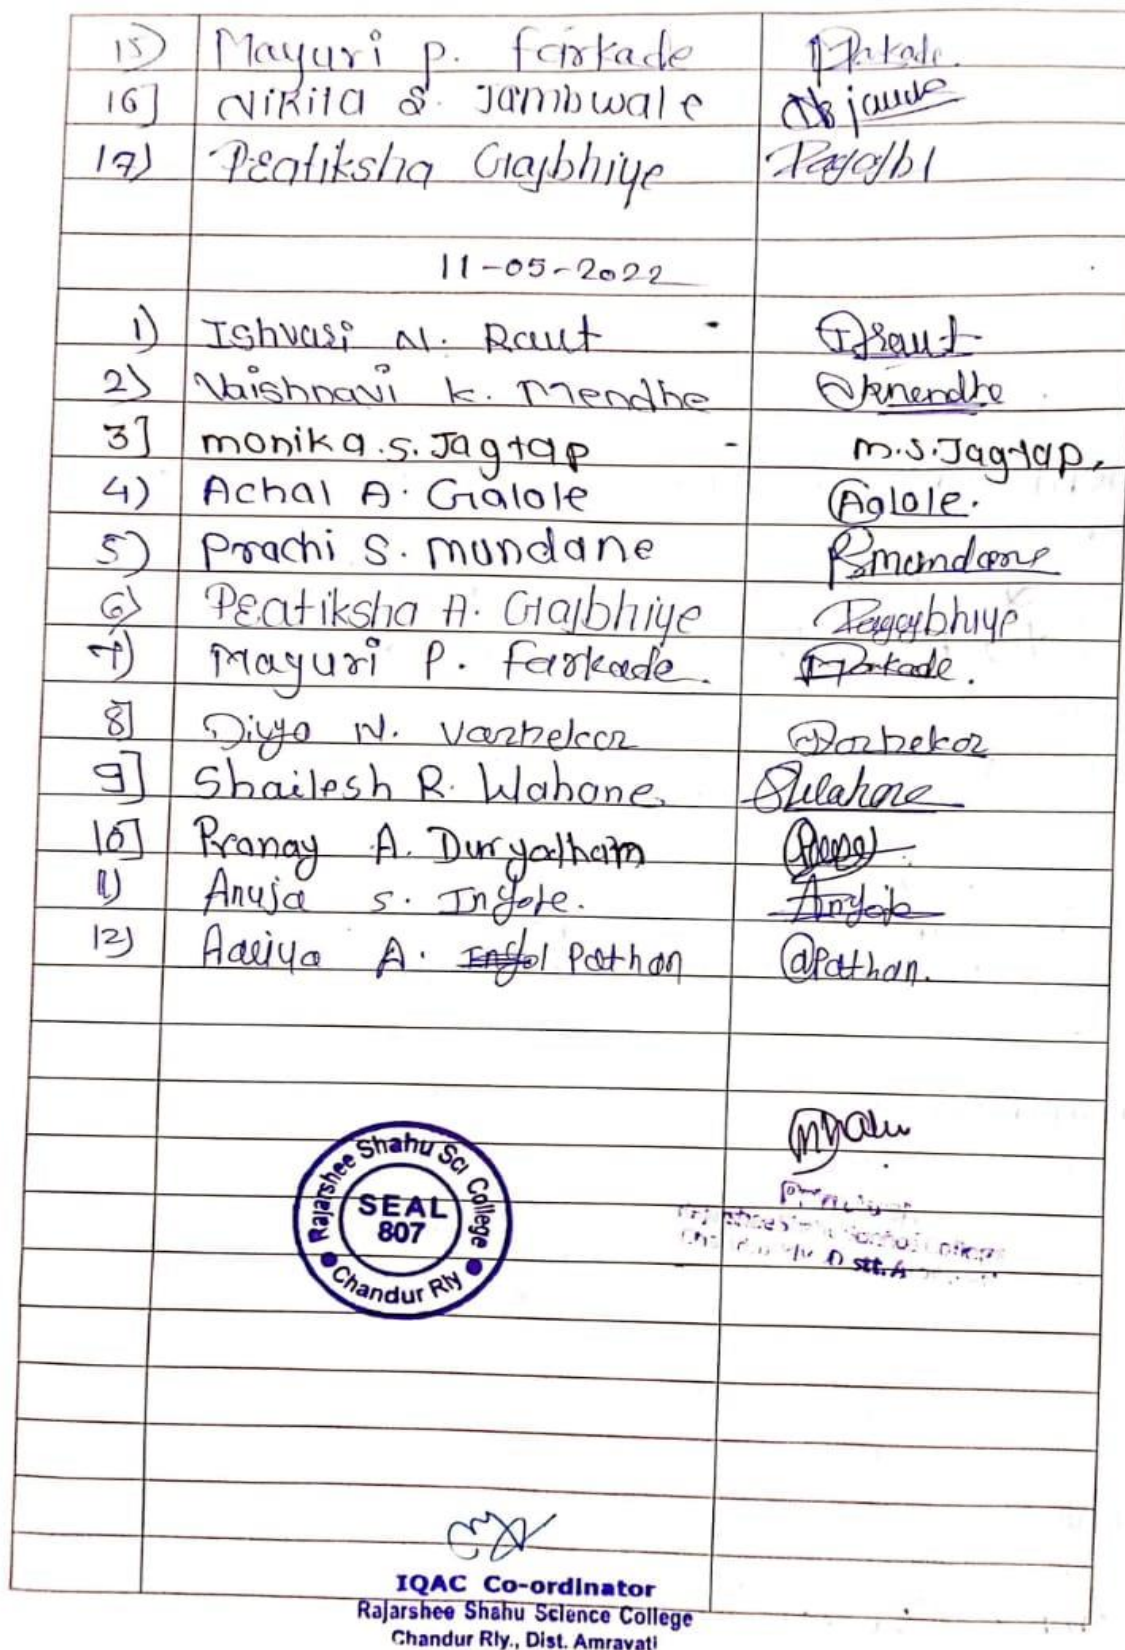 15) Mayuri P. Farkade
16] Nikita S. Jambwale
17) Pratiksha Gajbhiye
11-05-2022
1) Ishvari N. Raut
2) Vaishnavi K. Mendhe Mendhe
3] monika.S.Jagtap - m.s.Jagtap.
4) Achal A. Galole Aglole.
5) Prachi S. mundane
6) Pratiksha A. Gajbhiye
7) Mayuri P. Farkade.
8] Divya N. Varhekar
9] Shailesh R. Wahane
10] Pranay A. Duryodham
11) Anuja S. Ingole.
12) A. Pathan @Pathan.
Rajarshee Shahu Sci College
SEAL
807
Chandur Rly
IQAC Co-ordinator
Rajarshee Shahu Science College
Chandur Rly., Dist. Amravati